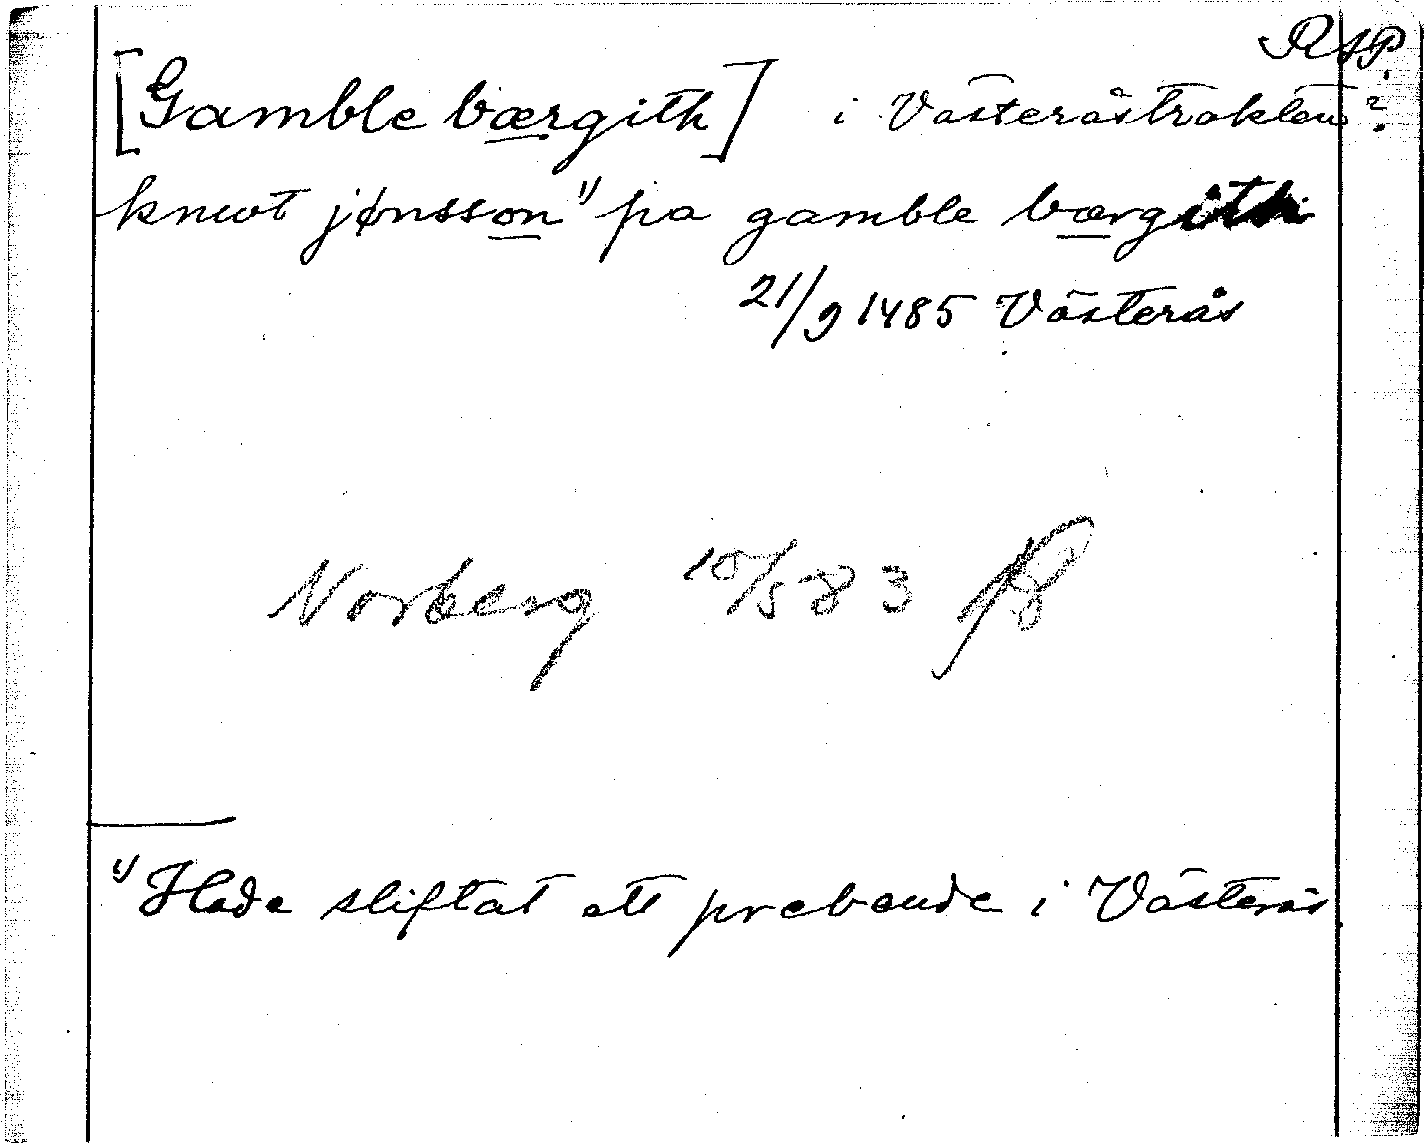 RAP.
[Gamble bærgith] i Västeråstrakten?
knwt jønsson 1) pa gamble bærgith
21/9 1485 Västerås
Norberg 10/5 83
1) Hade stiftat ett prebende i Västerås